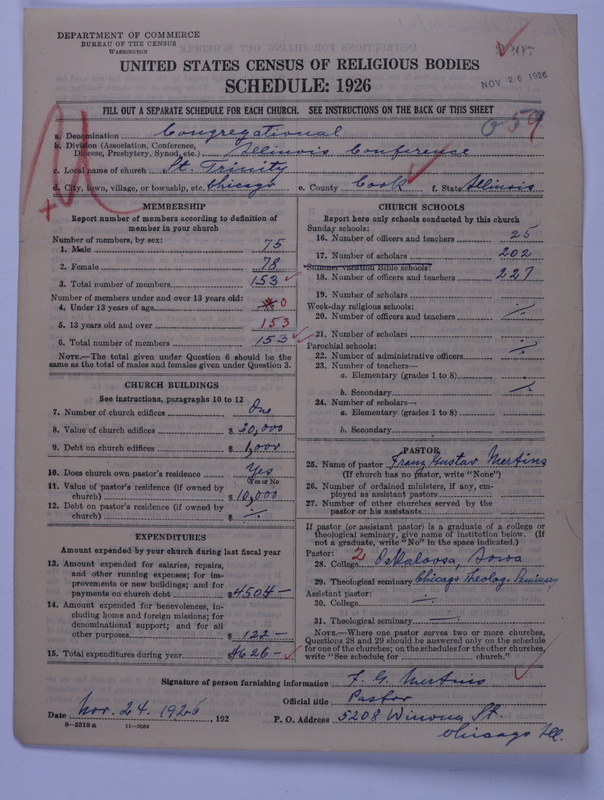 DEPARTMENT OF COMMERCE
BUREAU OF THE CENSUS
WASHINGTON
NOV 26 1926
UNITED STATES CENSUS OF RELIGIOUS BODIES
SCHEDULE: 1926
FILL OUT A SEPARATE SCHEDULE FOR EACH CHURCH. SEE INSTRUCTIONS ON THE BACK OF THIS SHEET
059
a. Denomination Congregational
b. Division (Association, Conference, Diocese, Presbytery, Synod, etc.) Illinois Conference
c. Local name of church St. Trinity
d. City, town, village, or township, etc. Chicago e. County Cook f. State Illinois
MEMBERSHIP
Report number of members according to definition of member in your church
Number of members, by sex:
1. Male 75
2. Female 78
3. Total number of members 153
Number of members under and over 13 years old:
4. Under 13 years of age 0
5. 13 years old and over 153
6. Total number of members 153
NOTE.—The total given under Question 6 should be the same as the total of males and females given under Question 3.
CHURCH BUILDINGS
See instructions, paragraphs 10 to 12
7. Number of church edifices One
8. Value of church edifices $20,000
9. Debt on church edifices $1,000
10. Does church own pastor's residence Yes
(Yes or No)
11. Value of pastor's residence (if owned by church) $10,000
12. Debt on pastor's residence (if owned by church) $ ·/·
EXPENDITURES
Amount expended by your church during last fiscal year
13. Amount expended for salaries, repairs, and other running expenses; for improvements or new buildings; and for payments on church debt $4504—
14. Amount expended for benevolences, including home and foreign missions; for denominational support; and for all other purposes $122—
15. Total expenditures during year $4626—
CHURCH SCHOOLS
Report here only schools conducted by this church
Sunday schools:
16. Number of officers and teachers 25
17. Number of scholars 202
Summer vacation Bible schools:
18. Number of officers and teachers 227
19. Number of scholars
Week-day religious schools:
20. Number of officers and teachers ·/·
21. Number of scholars
Parochial schools:
22. Number of administrative officers ·/·
23. Number of teachers—
a. Elementary (grades 1 to 8)
b. Secondary ·/·
24. Number of scholars—
a. Elementary (grades 1 to 8)
b. Secondary
PASTOR
25. Name of pastor Franz Gustav Mertins
(If church has no pastor, write "None")
26. Number of ordained ministers, if any, employed as assistant pastors
27. Number of other churches served by the pastor or his assistants
If pastor (or assistant pastor) is a graduate of a college or theological seminary, give name of institution below. (If not a graduate, write "No" in the space indicated.)
Pastor: 2
28. College Oskaloosa, Iowa
29. Theological seminary Chicago Theolog. Seminary
Assistant pastor:
30. College ·/·
31. Theological seminary ·/·
NOTE.—Where one pastor serves two or more churches, Questions 28 and 29 should be answered only on the schedule for one of the churches; on the schedules for the other churches, write "See schedule for church."
Signature of person furnishing information F. G. Mertins
Official title Pastor
Date Nov. 24. 1926, 192 P. O. Address 5208 Winona St.
Chicago Ill.
8—5518a 11—9084